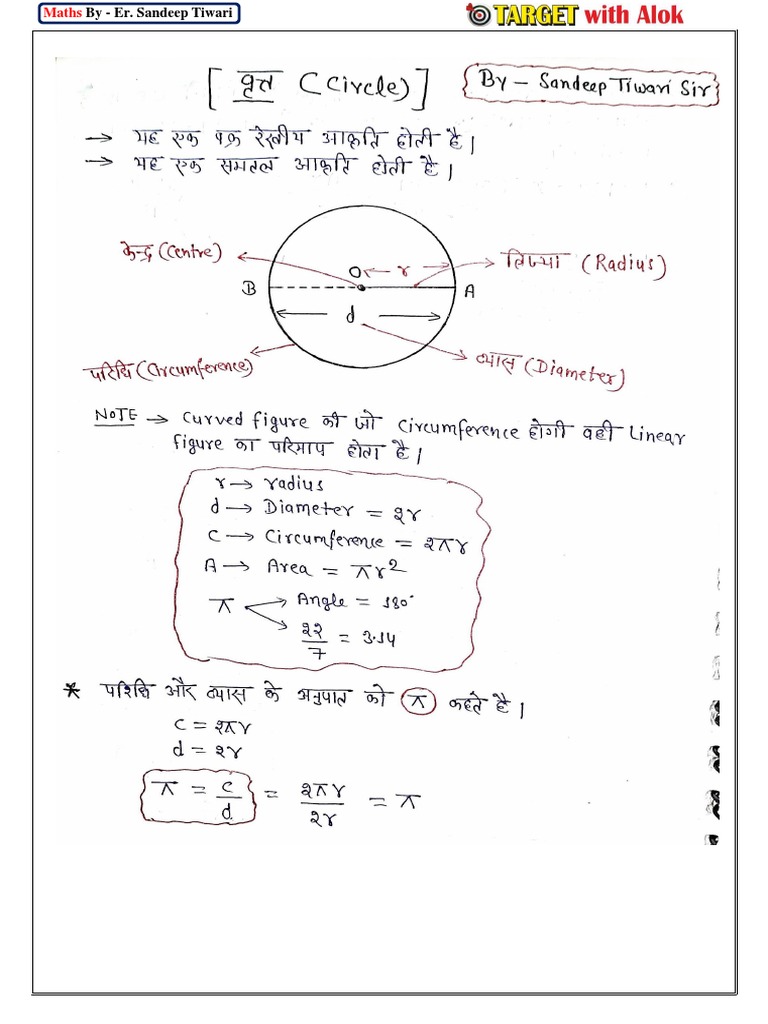 Maths By - Er. Sandeep Tiwari
TARGET with Alok
[ वृत्त (Circle) ]
By - Sandeep Tiwari Sir
→ यह एक वक्र रेखीय आकृति होती है।
→ यह एक समतल आकृति होती है।
केन्द्र (Centre)
O ← r →
त्रिज्या (Radius)
B
A
← d →
परिधि (Circumference)
व्यास (Diameter)
NOTE → Curved figure की जो Circumference होगी वही Linear
figure का परिमाप होता है।
r → radius
d → Diameter = 2r
C → Circumference = 2πr
A → Area = πr²
π → Angle = 180°
→ 22/7 = 3.14
* परिधि और व्यास के अनुपात को π कहते है।
C = 2πr
d = 2r
π = C/d = 2πr/2r = π